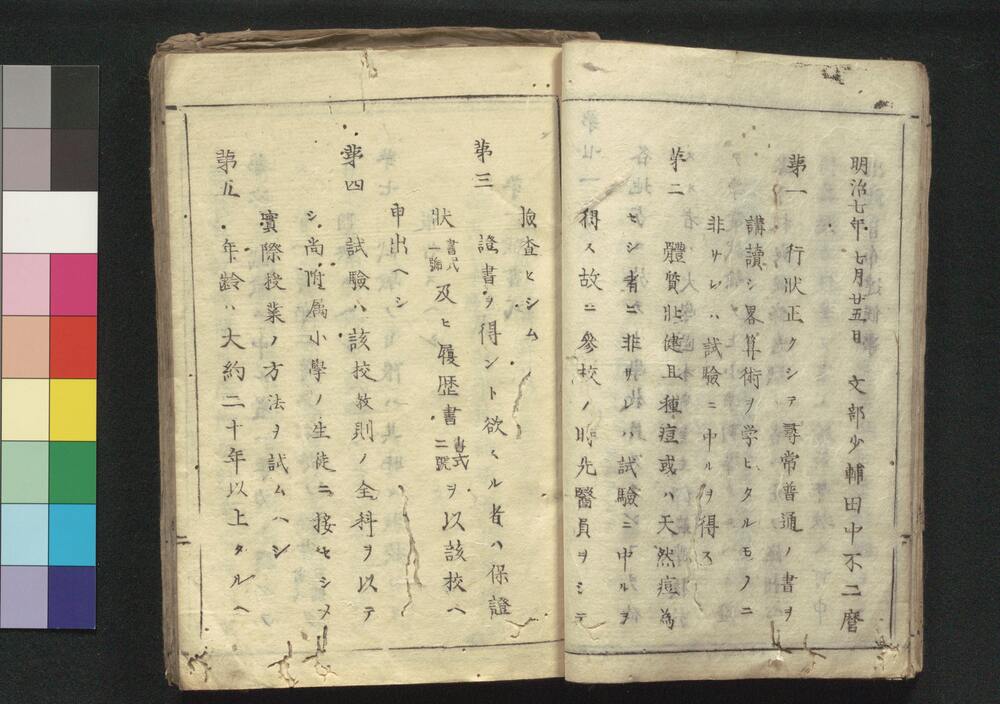 明治七年七月廿五日 文部少輔田中不二麿
第一 行状正クシテ尋常普通ノ書ヲ
講讀シ畧算術ヲ学ヒタルモノニ
非サレハ試驗ニ中ルヲ得ス
第二 體質壯健且種痘或ハ天然痘為
セシ者ニ非サレハ試驗ニ中ルヲ
得ス故ニ參校ノ時先醫員ヲシテ
檢査セシム
第三 證書ヲ得ント欲スル者ハ保證
状書式一號及ヒ履歴書書式二號ヲ以該校ヘ
申出ヘシ
第四 試驗ハ該校教則ノ全科ヲ以テ
シ尚附属小學ノ生徒ニ接セシメ
實際授業ノ方法ヲ試ムヘシ
第五 年齢ハ大約二十年以上タルヘ